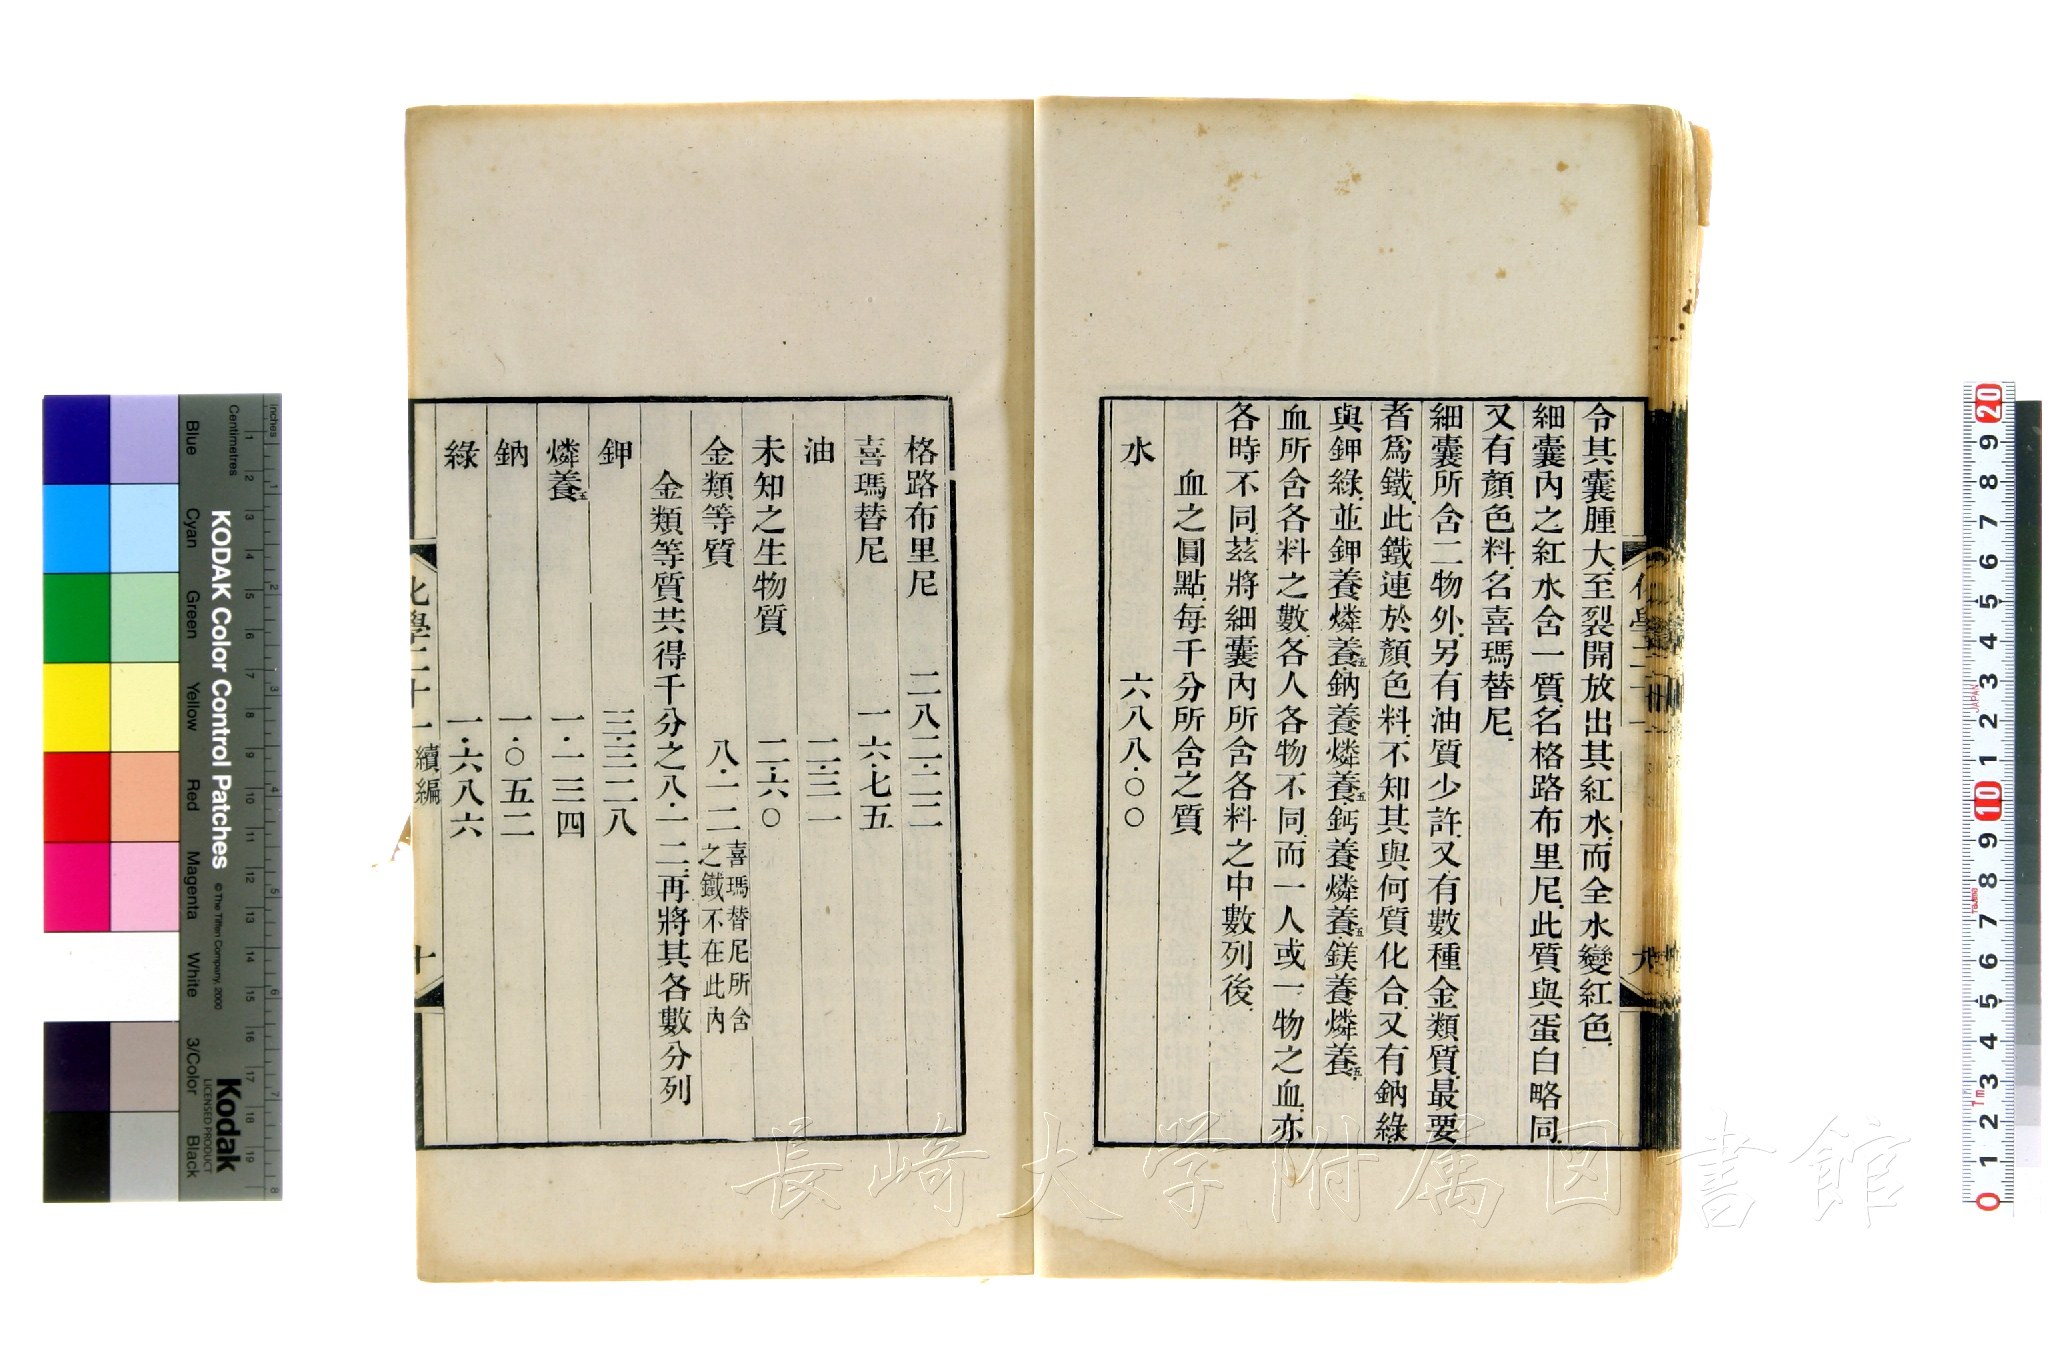 令其囊腫大.至裂開放出其紅水.而全水變紅色.
細囊內之紅水含一質.名格路布里尼.此質與蛋白略同.
又有顏色料.名喜瑪替尼.
細囊所含二物外.另有油質少許.又有數種金類質.最要
者爲鐵.此鐵連於顏色料.不知其與何質化合.又有鈉綠
與鉀綠.並鉀養燐養五.鈉養燐養五.鈣養燐養五.鎂養燐養五.
血所含各料之數.各人各物不同.而一人或一物之血.亦
各時不同.茲將細囊內所含各料之中數列後.
血之圓點.每千分所含之質
水 六八八·〇〇
格路布里尼 二八二·二二
喜瑪替尼 一六·七五
油 二·三一
未知之生物質 二·六〇
金類等質 八·一二 喜瑪替尼所含之鐵不在此內
金類等質共得千分之八·一二.再將其各數分列
鉀 三·三二八
燐養五 一·一三四
鈉 一·〇五二
綠 一·六八六
化學二十一 續編
十
長崎大学附属図書館
KODAK Color Control Patches
© The Tiffen Company, 2000
Kodak
LICENSED PRODUCT
Inches
Centimetres
Blue
Cyan
Green
Yellow
Red
Magenta
White
3/Color
Black